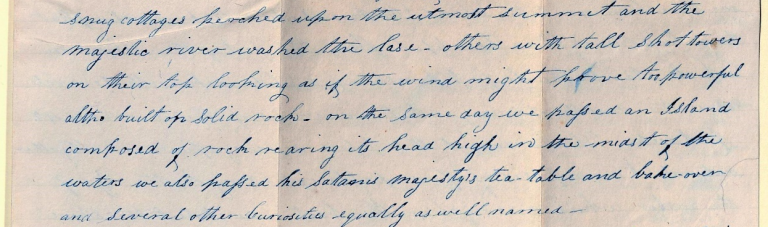 snug cottages perched upon the utmost summet and the
majestic river washed the base - others with tall shot towers
on their top looking as if the wind might prove too powerful
altho built on solid rock - on the same day we passed an Island
composed of rock rearing its head high in the midst of the
waters we also passed his Satanis majestys tea-table and bake-oven
and several other curiosities equally as well named -